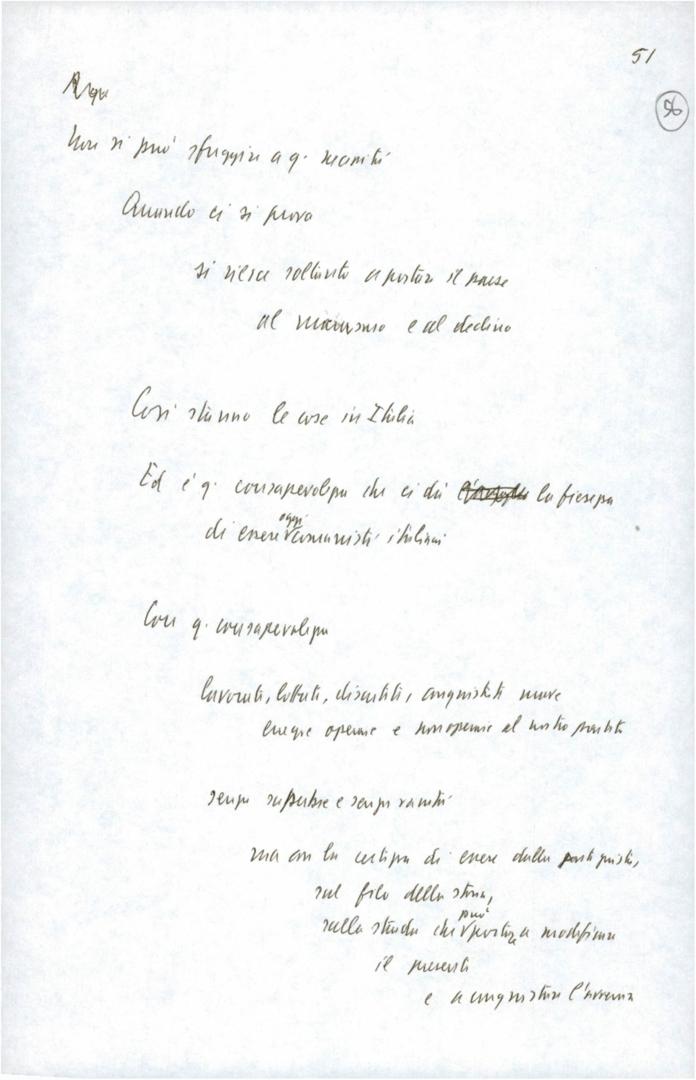 51
56
Non si può sfuggire a q. necessità
Quando ci si prova
si riesce soltanto a portare il paese
al e al declino
Così stanno le cose in Italia
Ed è q. consapevolezza che ci dà la fierezza
di essere oggi comunisti italiani
Con q. consapevolezza
lavorate, lottate, discutete, conquistate nuove
energie operaie e non operaie al nostro partito
senza superbie e senza vanità
ma con la certezza di essere dalla parte giusta,
sul filo della storia,
sulla strada che può portare a modificare
il presente
e a conquistare l'avvenire